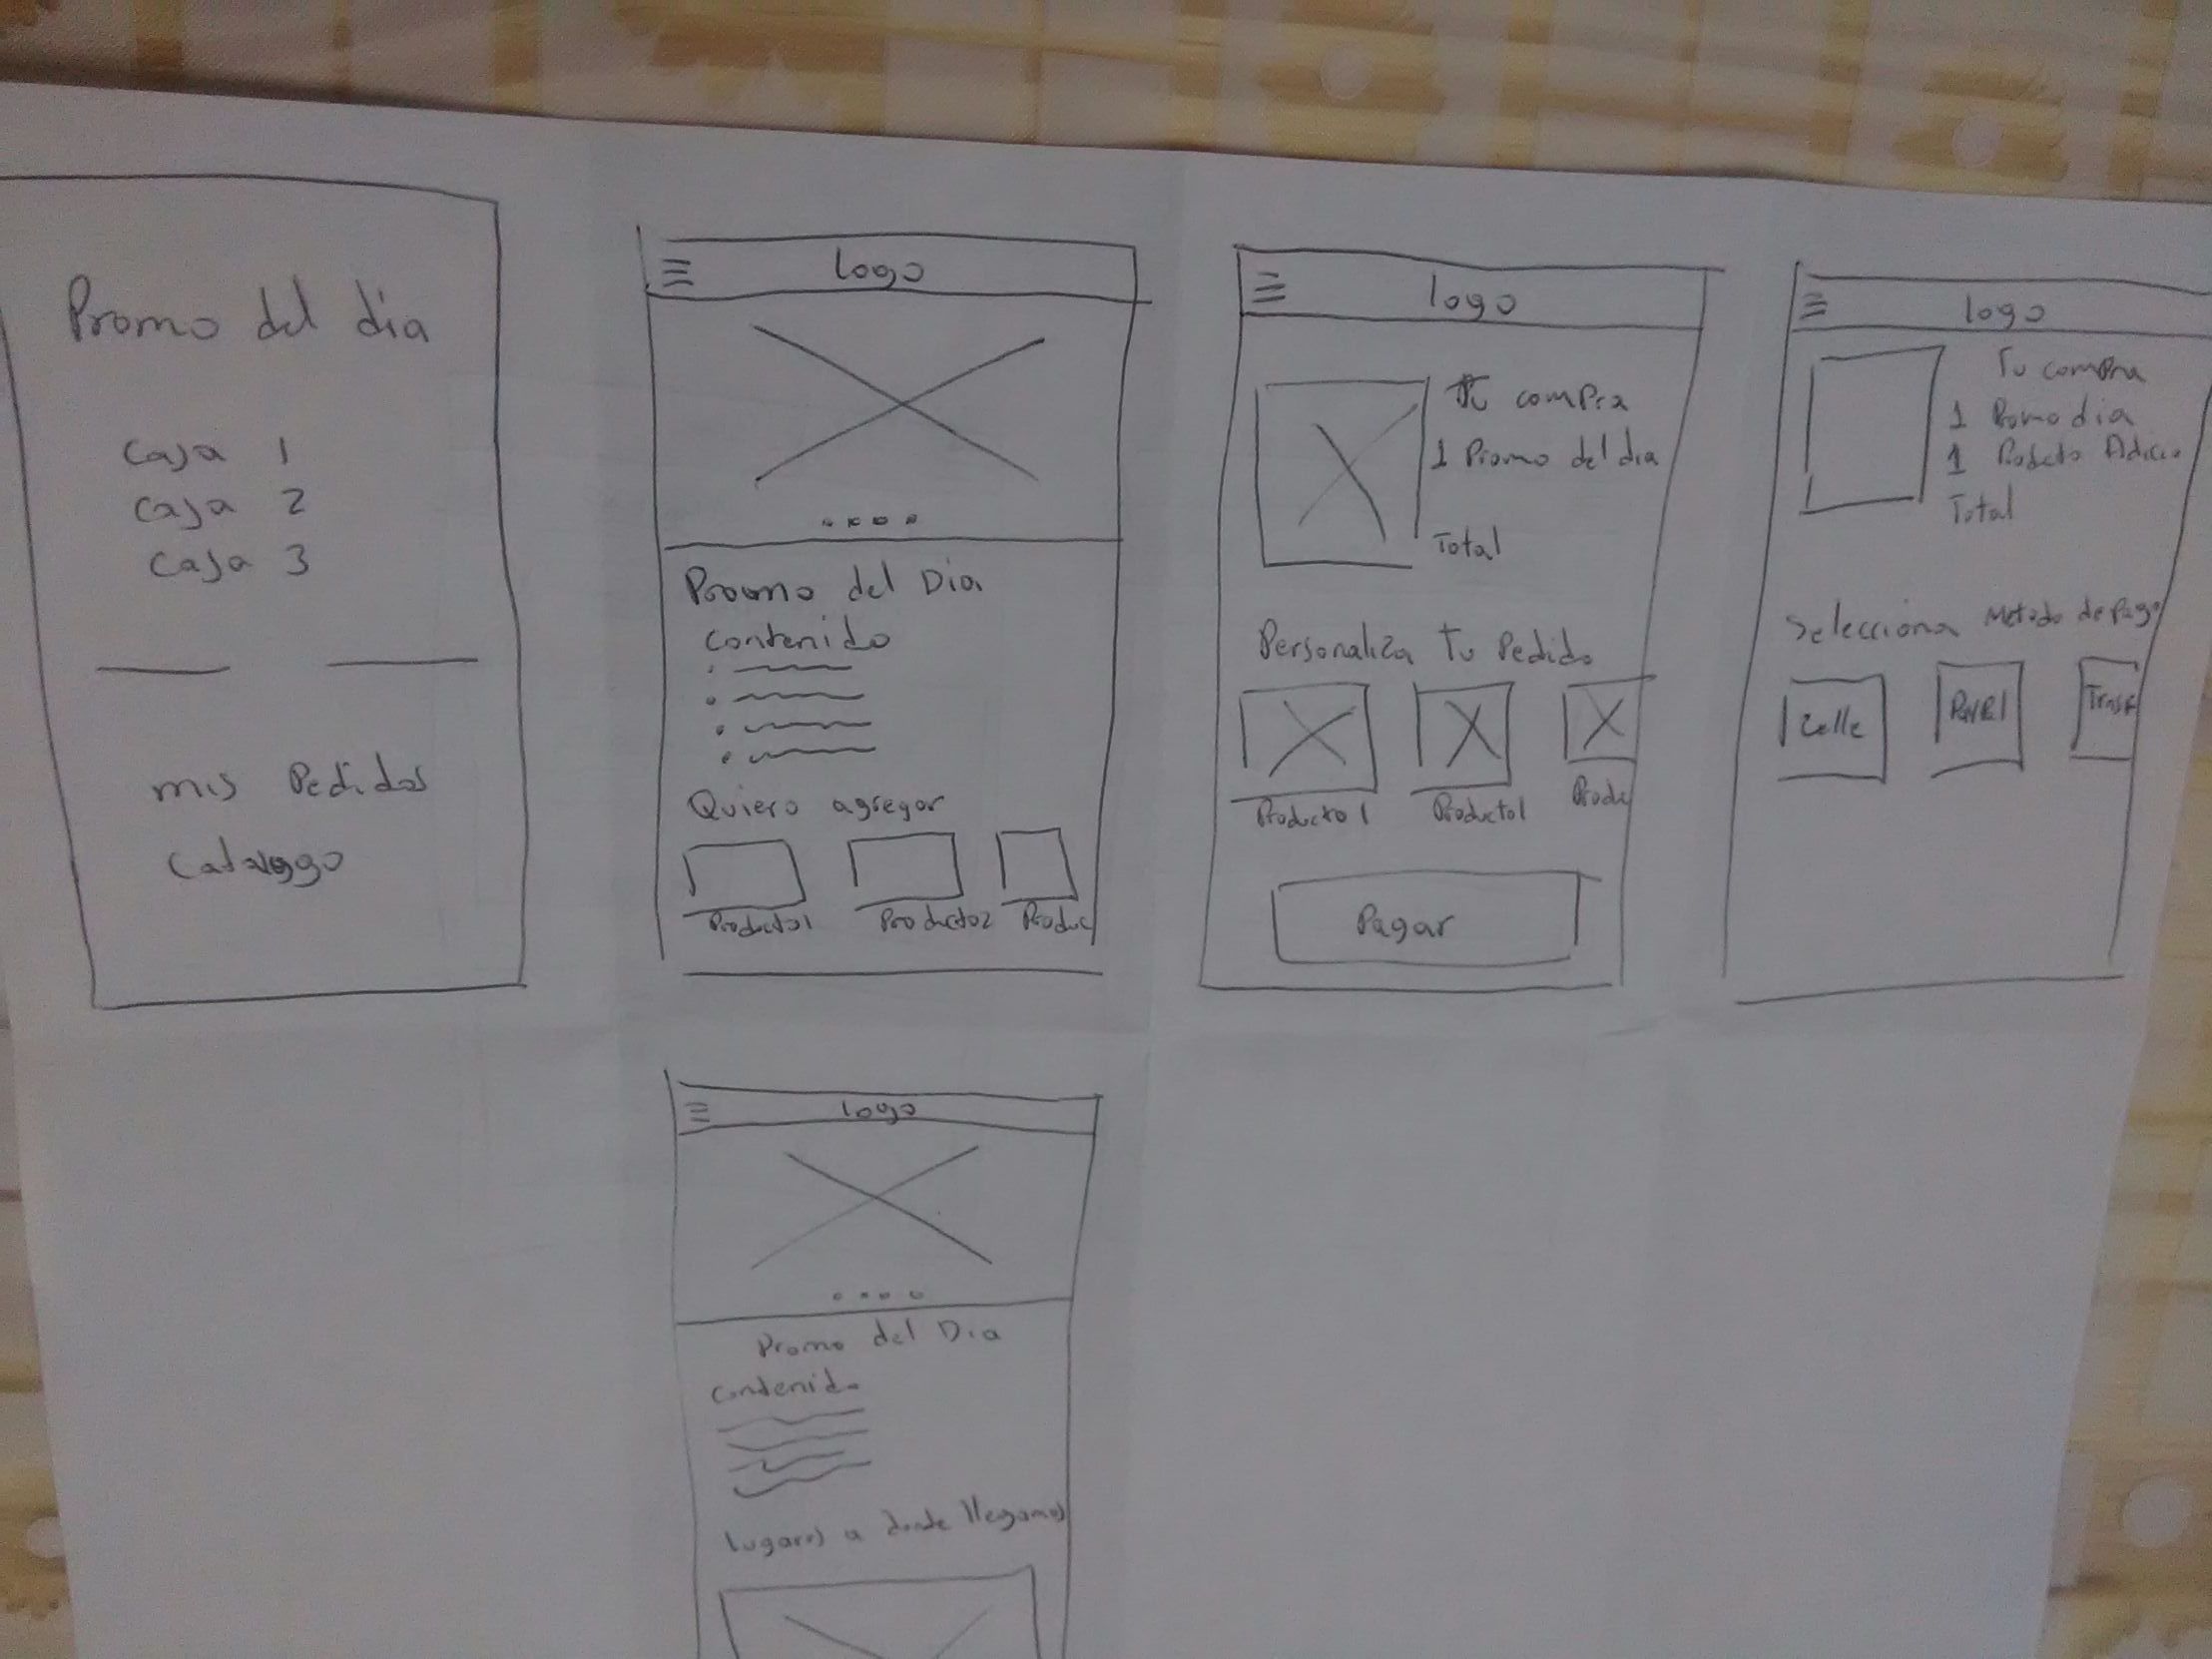 Promo del dia
Caja 1
Caja 2
Caja 3
mis Pedidos
logo
Promo del Dia
Contenido
Quiero agregar
Producto1
Producto2
Produc
logo
Tu compra
1 Promo del dia
Total
Personaliza tu Pedido
Producto 1
Producto1
Produ
Pagar
logo
Tu compra
1 Promo dia
1
Total
Selecciona Metodo de Pago
Zelle
logo
Promo del Dia
Contenido
lugares a donde llegamos